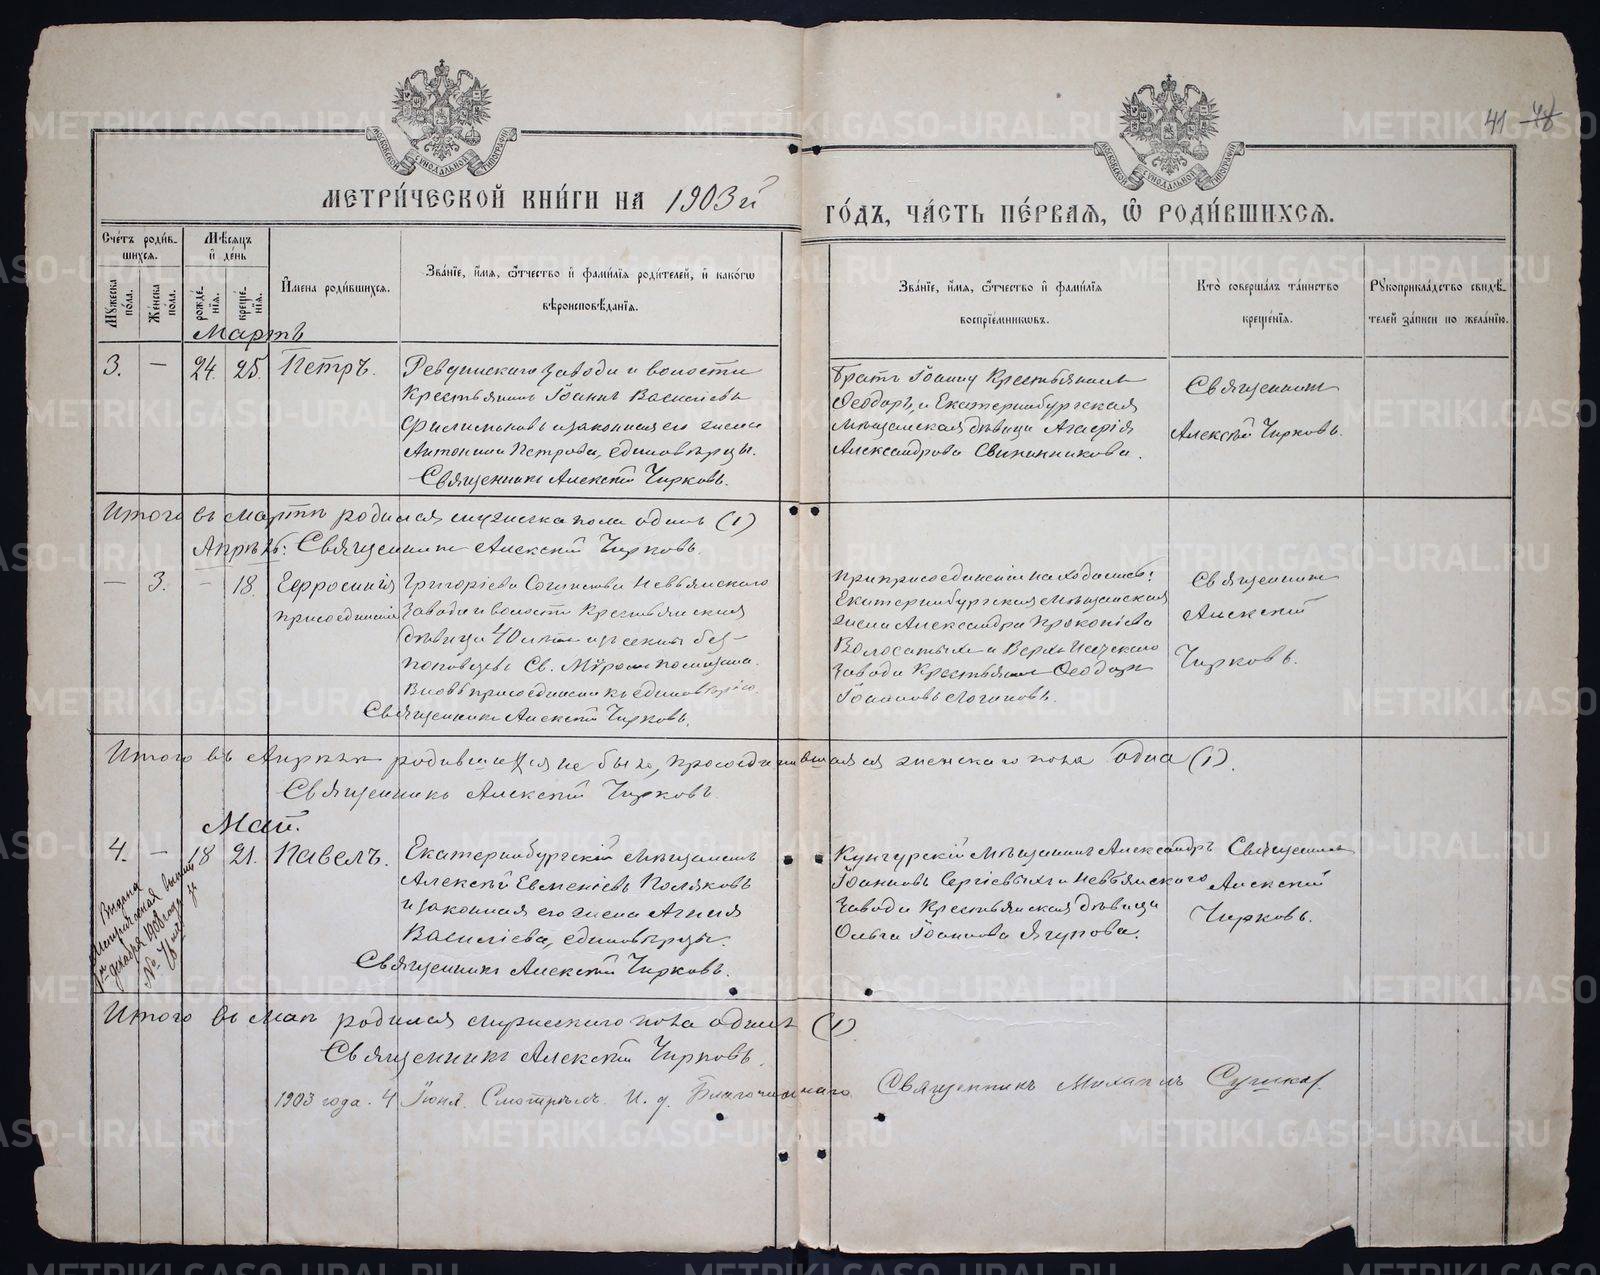 41 48
МОСКОВСКОЙ СѴНОДАЛЬНОЙ ТИПОГРАФІИ
МОСКОВСКОЙ СѴНОДАЛЬНОЙ ТИПОГРАФІИ
МЕТРИ́ЧЕСКОЙ КНИ́ГИ НА 1903й
ГО́ДЪ, ЧА́СТЬ ПЕ́РВАѦ, Ѽ РОДИ́ВШИХСѦ.
Сче́тъ роди́в-
шихсѧ.
Мꙋ́жеска по́ла.
Же́нска по́ла.
Мѣ́сѧцъ
и҆ де́нь
рожде́нїѧ.
креще́нїѧ.
И҆́мена роди́вшихсѧ.
Зва́нїе, и҆́мѧ, ѻ҆́тчество и҆ фами́лїѧ роди́телей, и҆ како́гѡ
вѣроисповѣ́данїѧ.
Зва́нїе, и҆́мѧ, ѻ҆́тчество и҆ фами́лїѧ
воспрїе́мникѡвъ.
Кто̀ соверша́лъ та́инство
креще́нїѧ.
Рꙋкоприкла́дство свидѣ́-
телей за́писи по жела́нїю.
Мартъ
3. — 24. 25. Петръ.
Ревдинскаго завода и волости
Крестьянинъ Іоаннъ Васильевъ
Филимоновъ и законная его жена
Антонина Петрова, единовѣрцы.
Священникъ Алексій Чирковъ.
Братъ Іоанну Крестьянинъ
Ѳеодоръ, и Екатеринбургская
Мѣщанская дѣвица Агафія
Александрова Свинникова.
Священникъ
Алексѣй Чирковъ.
Итого въ мартѣ родился мужеска пола одинъ (1)
Апрѣль: Священникъ Алексій Чирковъ.
— 3. — 18. Евфросинія
присоединенія
Григоріева Невьянскаго
завода и волости Крестьянская
дѣвица 40 лѣтъ изъ секты без-
поповцевъ Св. Мѵромъ помазана.
Вновь присоединена къ единовѣрію.
Священникъ Алексій Чирковъ.
При присоединеніи находились:
Екатеринбургская Мѣщанская
жена Александра Прокопіева
Волосатыхъ и Верхъ Исетскаго
завода Крестьянинъ Ѳеодоръ
Іоанновъ Логиновъ.
Священникъ
Алексій
Чирковъ.
Итого въ Апрѣлѣ родившихся не было, присоединившаяся женскаго пола одна (1).
Священникъ Алексій Чирковъ
Май.
4. — 18 21. Павелъ.
Екатеринбургскій Мѣщанинъ
Алексѣй Евменіевъ Поляковъ
и законная его жена Агнія
Василіева, единовѣрцы.
Священникъ Алексій Чирковъ.
Кунгурскій Мѣщанинъ Александръ
Іоанновъ Сергіевыхъ и Невьянскаго
завода Крестьянская дѣвица
Ольга Іоаннова Ягупова.
Священникъ
Алексій
Чирковъ.
Выдана
Метрическая выпись
декабря 1908 года
за
№ 78
Итого въ Маѣ родился мужескаго пола одинъ (1)
Священникъ Алексій Чирковъ.
1903 года. 4 Іюня. Смотрѣлъ И. д. Благочиннаго Священникъ Михаилъ
METRIKI.GASO-URAL.RU